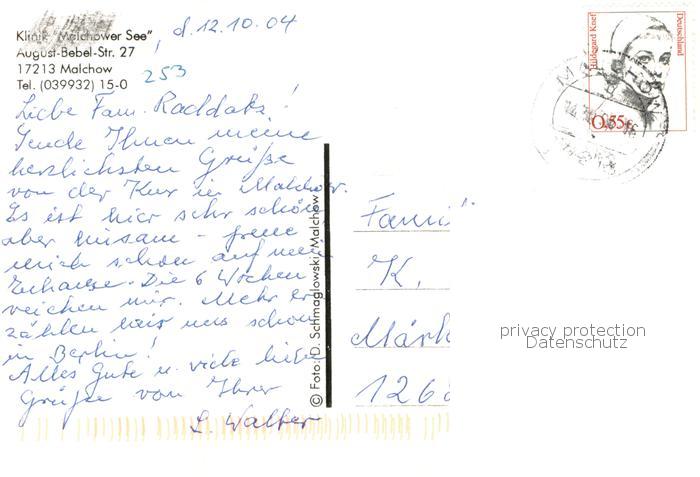 Klinik "Malchower See"
August-Bebel-Str. 27
17213 Malchow
Tel. (039932) 15-0
d. 12.10.04
253
Liebe Fam. Raddatz!
Sende Ihnen meine
herzlichsten Grüße
von der Kur in Malchow.
Es ist hier sehr schön
aber einsam - freue
mich schon auf mein
Zuhause. Die 6 Wochen
reichen mir. Mehr er
zählen wir uns schon
in Berlin!
Alles Gute u. viele liebe
Grüße von Ihrer
L. Walter
© Foto: D. Schmaglowski, Malchow
Hildegard Knef
Deutschland
0,55€
Fami
K.
Märk
1268
privacy protection
Datenschutz